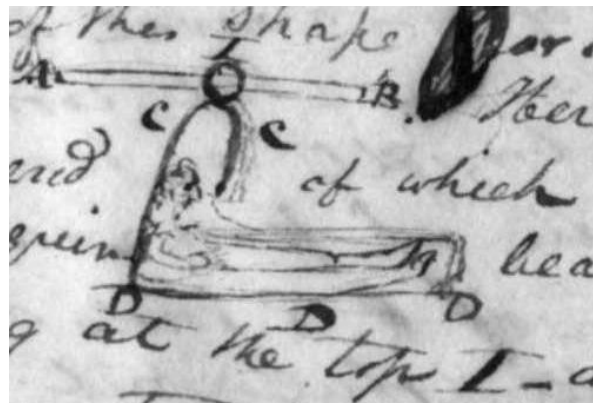 of the shape or
I
A B. Her
C C
ered of which
hea
D D D
g at the top I - a